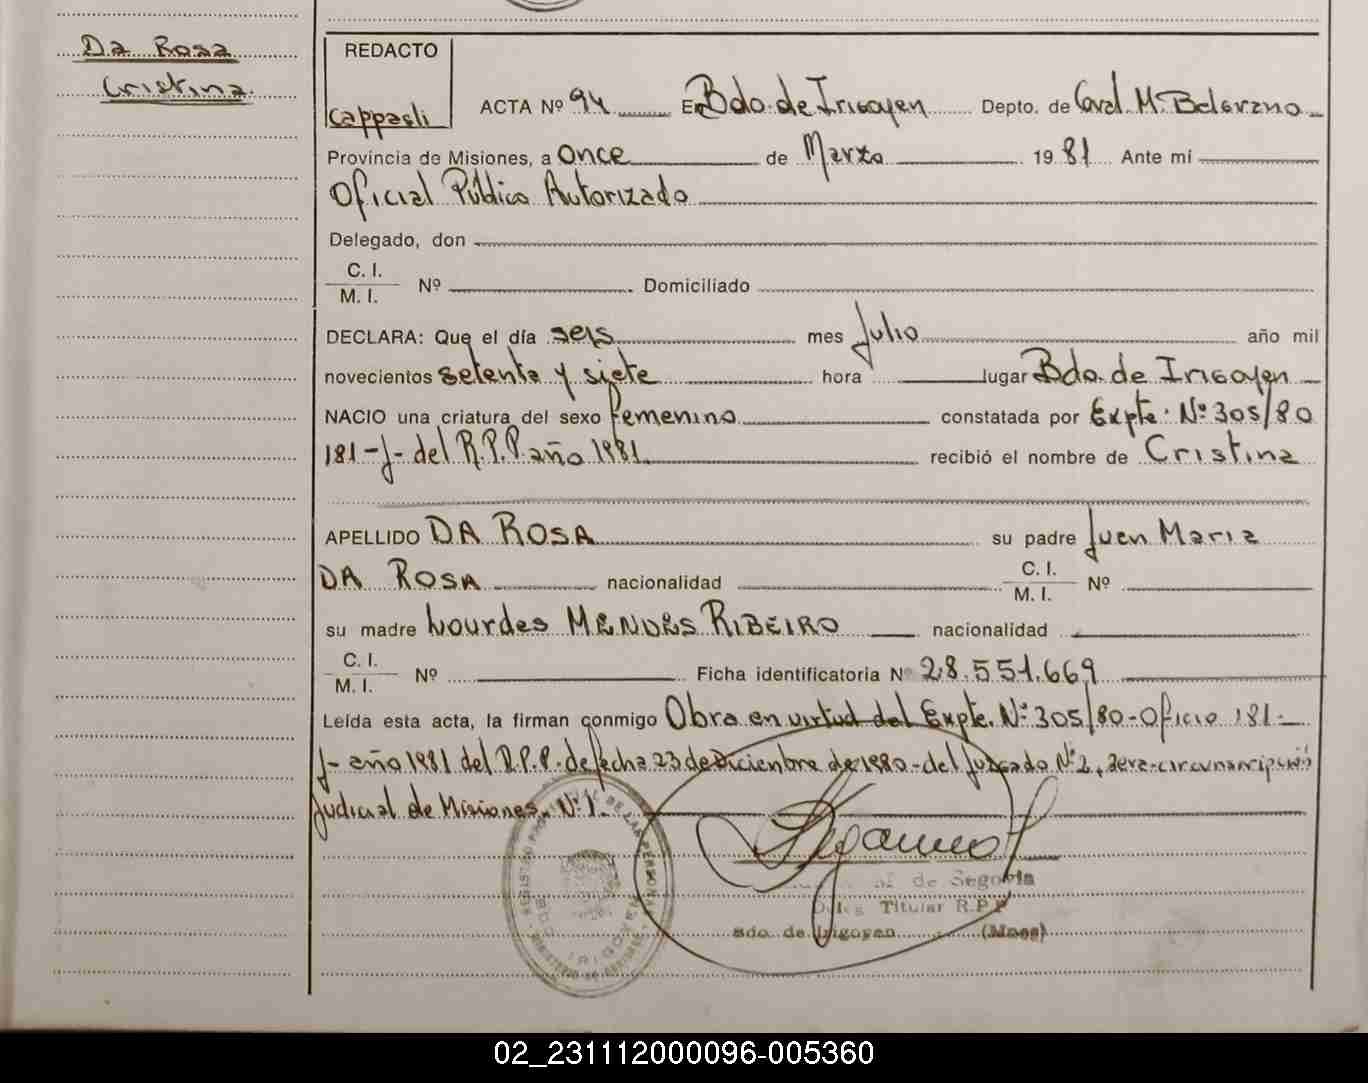 Da Rosa
Cristina.
REDACTO
Cappagli
ACTA Nº 94 En Bdo. de Irigoyen Depto. de Gral. M. Belgrano
Provincia de Misiones, a Once de Marzo 1981 Ante mi
Oficial Público Autorizado
Delegado, don
C. I.
M. I. Nº Domiciliado
DECLARA: Que el día seis mes Julio año mil
novecientos setenta y siete hora lugar Bdo. de Irigoyen
NACIO una criatura del sexo femenino constatada por Expte. Nº 305/80
181-J- del R.P.P. año 1981. recibió el nombre de Cristina
APELLIDO DA ROSA su padre Juan Maria
DA ROSA nacionalidad C. I.
M. I. Nº
su madre Lourdes MENDES RIBEIRO nacionalidad
C. I.
M. I. Nº Ficha identificatoria Nº 28.551.669
Leída esta acta, la firman conmigo Obra en virtud del Expte. Nº 305/80-Oficio 181-
J- año 1981 del R.P.P. de fecha 23 de Diciembre de 1980- del Juzgado Nº 2, 3era-circunscripción
Judicial de Misiones. Nº 1.
de Segovia
Titular R.P.P
Bdo. de Irigoyen (Mnes)
REGISTRO PROVINCIAL DE LAS PERSONAS
IRIGOYEN
02_231112000096-005360